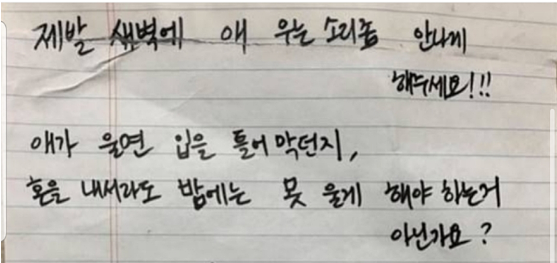 제발 새벽에 애 우는 소리좀 안나게
해주세요!!!
애가 울면 입을 틀어 막던지,
혼을 내서라도 밤에는 못 울게 해야 하는거
아닌가요?